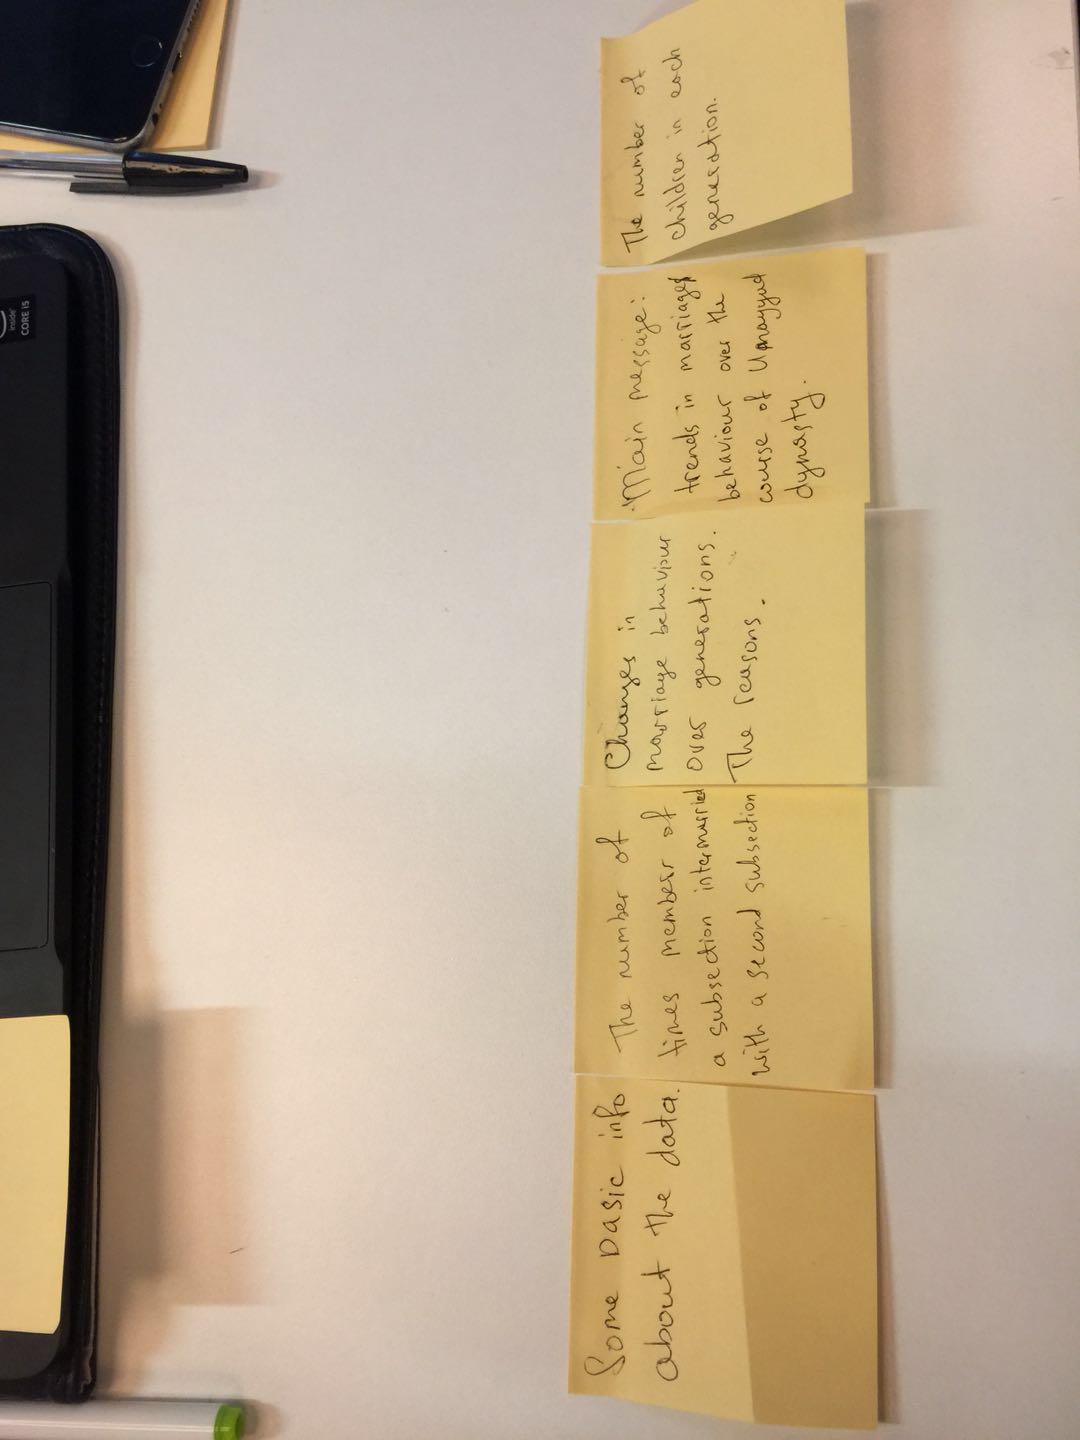 Some basic info
about the data.
The number of
times members of
a subsection intermarried
with a second subsection
Changes in
marriage behaviour
over generations.
The reasons.
Main message:
trends in marriages
behaviour over the
course of Umayyad
dynasty.
The number of
children in each
generation.
inside"
CORE i5